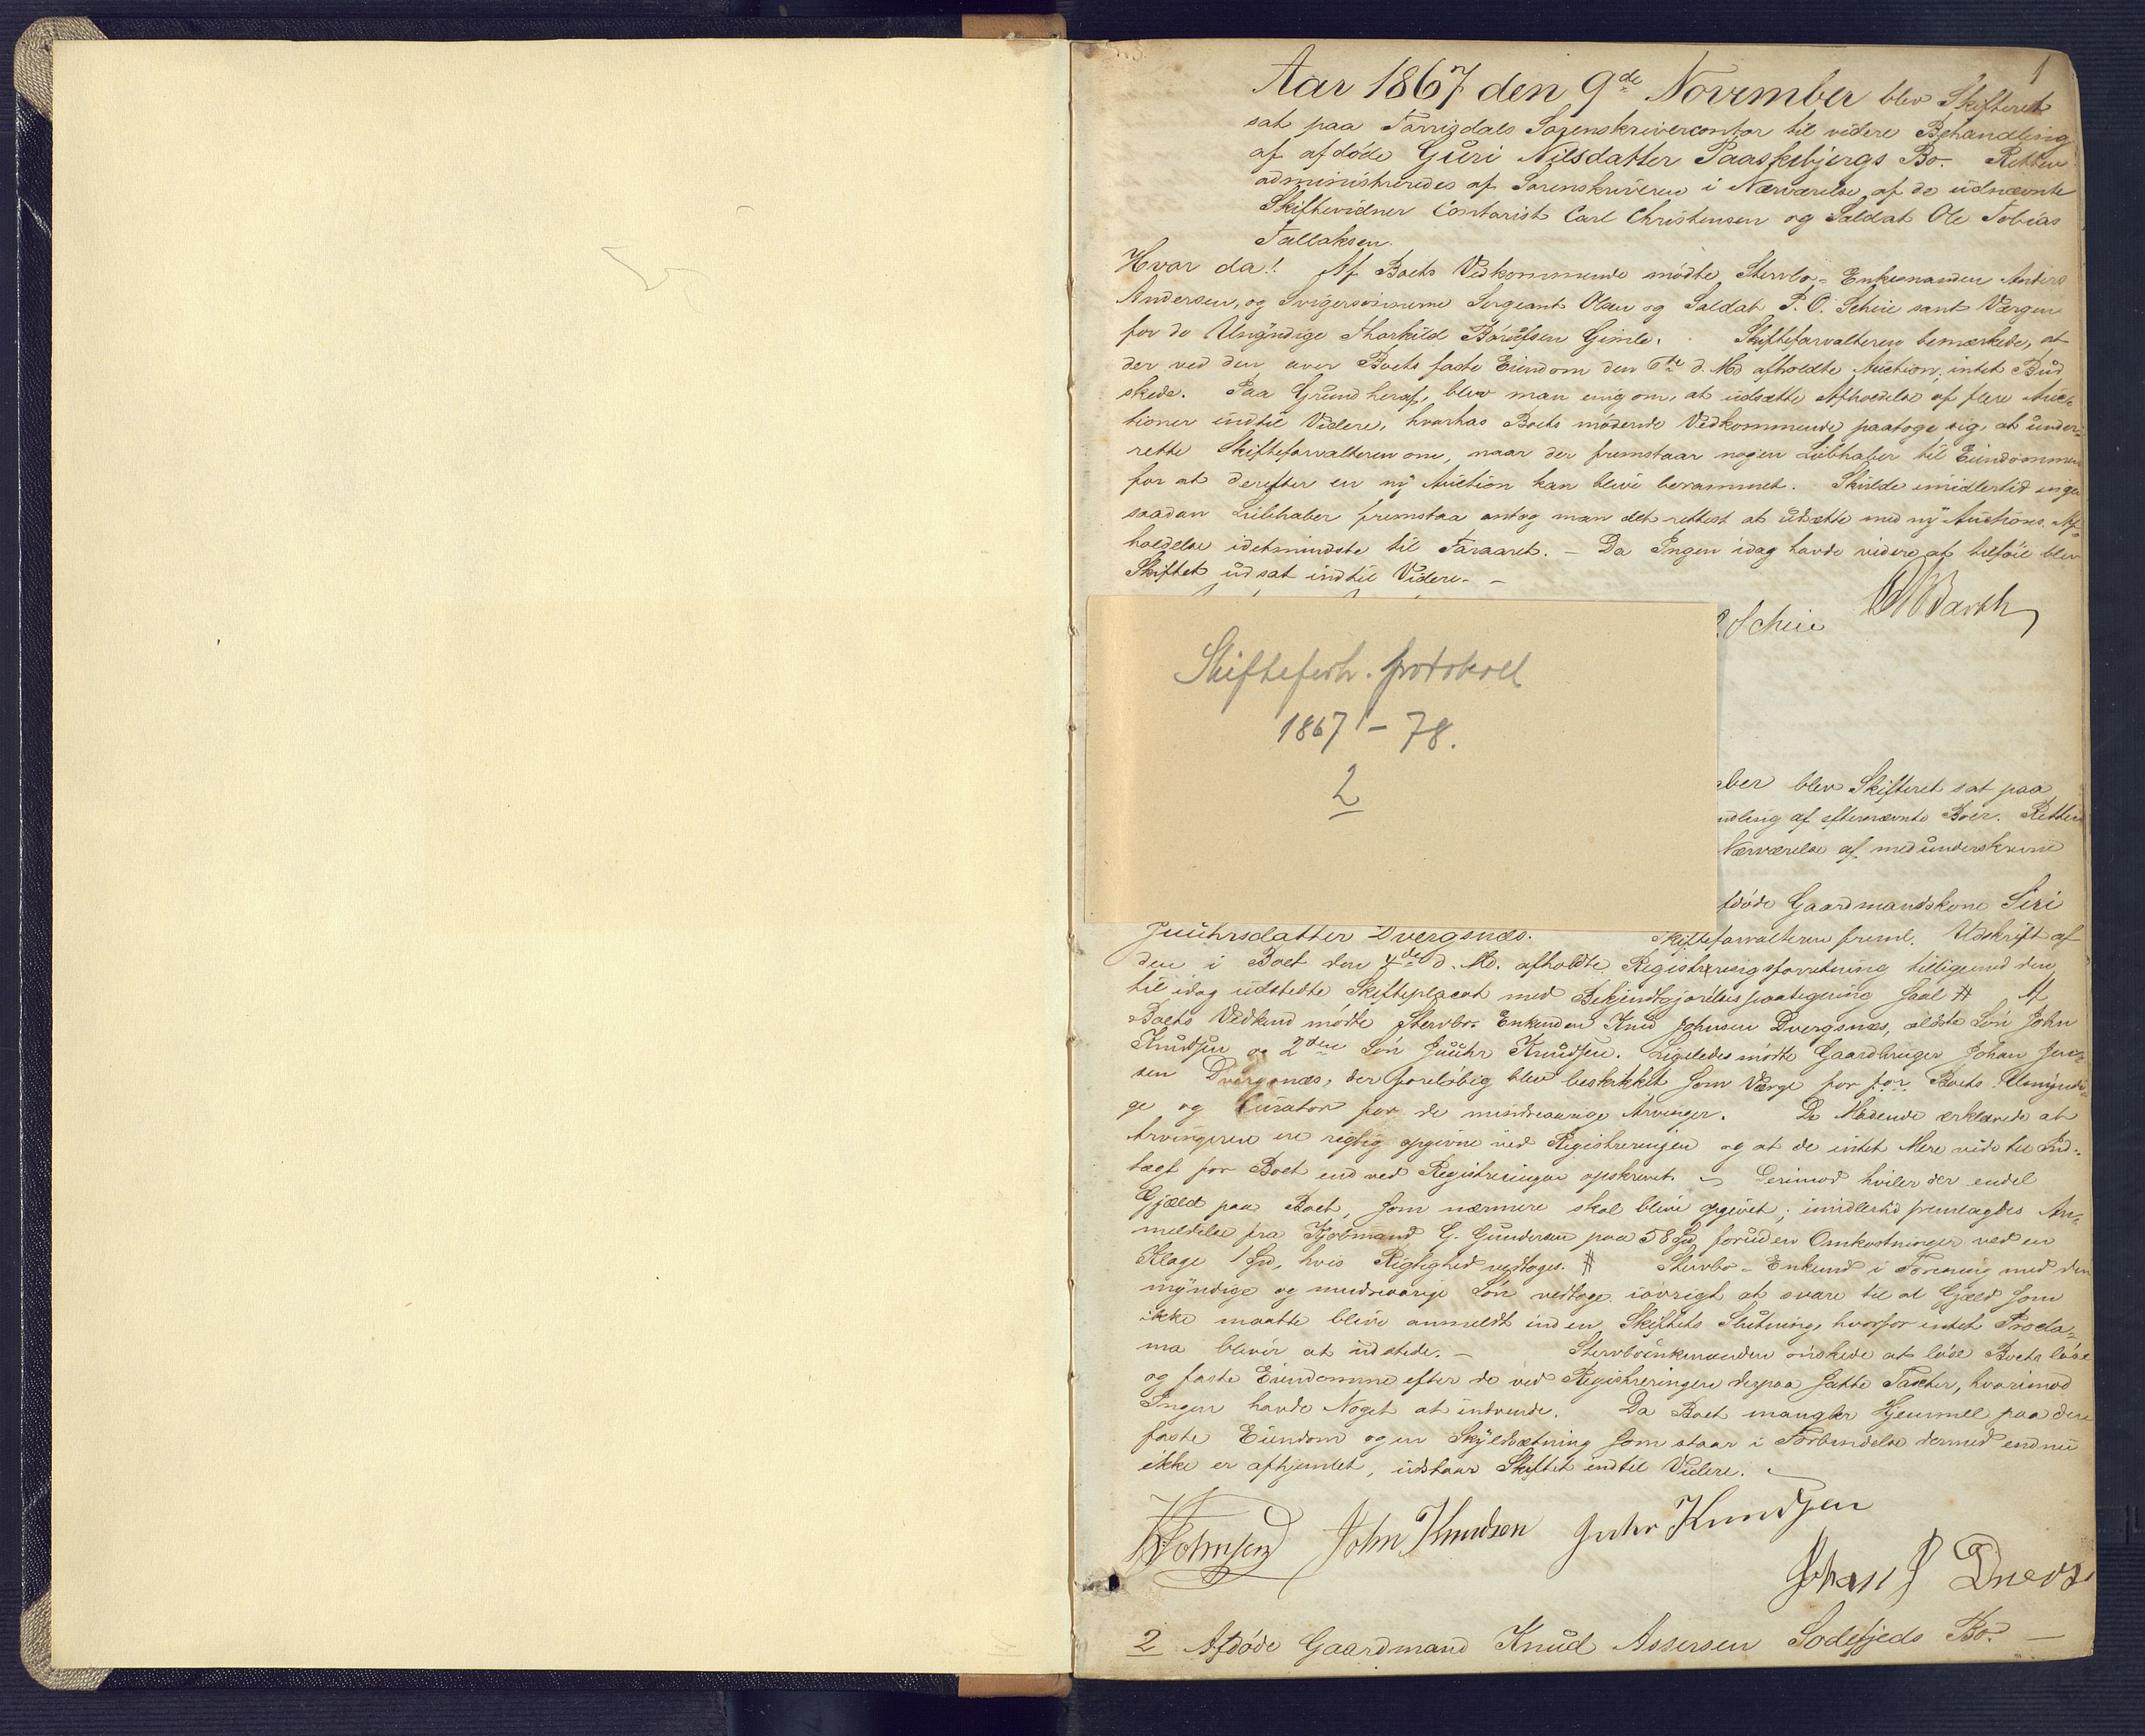 1
Aar 1867 den 9de November blev Skifteret
sat paa Torrisdals Sorenskrivercontor til videre Behandling
af afdöde Guri Nilsdatter Paaskebjergs Bo. Retten
administreredes af Sorenskriveren i Nærværelse af de udnævnte
Skiftevidner Contorist Carl Christensen og Soldat Ole Tobias
Tallaksen.
Hvor da! Af Boets Vedkommende mödte Stervbo-Enkemanden Anders
Andersen, og Svigersönnerne Sergeant Olsen og Soldat P. O. Scheie samt Værgen
for de Umyndige Thorkild Gimle. Skifteforvalteren bemærkede, at
der ved den over Boets faste Eiendom den 6te d. Md afholdte Auction, intet Bud
skede. Paa Grund heraf, blev man enig om, at udsætte Afholdelse af flere Auc-
tioner indtil Videre, hvorhos Boets mödende Vedkommende paatoge sig, at under-
rette Skifteforvalteren om, naar der fremstaar nogen Liebhaber til Eiendommen
for at derefter en ny Auction kan blive berammet. Skulde imidlertid ingen
saadan Liebhaber fremstaa antog man det rettest at udsætte med ny Auctions Af-
holdelse idetmindste til Foraaret. – Da Ingen idag havde videre at tilföie blev
Skiftet udsat indtil Videre. –
Scheie
Skifteforh. protokol
1867 – 78.
2
ber blev Skifteret sat paa
ndling af efternævnte Boer. Retten
Nærværelse af medunderskrevne
fdöde Gaardmandskone Siri
Juuhrsdatter Dvergsnæs. Skifteforvalteren freml. Udskrift af
den i Boet den 4de d. Md. afholdte Registreringsforretning tilligemed den
til idag udstedte Skifteplacat med Bekjendtgjörelsespaategning saal # Af
Boets Vedkmd mödte Stervbo-Enkmden Knud Johnsen Dvergsnæs, ældste Sön John
Knudsen og 2den Sön Juuhr Knudsen. Ligeledes mödte Gaardbruger Johan Jen-
sen Dvergsnæs, der foreløbig blev beskikket som Værge for for Boets Umyndi-
ge og Curator for de mindreaarige Arvinger. De Mödende erklærede at
Arvingerne ere rigtig opgivne ved Registreringen og at de intet Mere vide til Ind-
tægt for Boet end ved Registreringen opskrevet. – Derimod hviler der endel
Gjæld paa Boet, som nærmere skal blive opgivet; imidlertid fremlagdes An-
meldelse fra Kjöbmand G. Gundersen paa 58 Spd foruden Omkostninger ved en
Klage 1 Spd, hvis Rigtighed vedtoges. # Stervbo-Enkemd i Forening med den
myndige og mindreaarige Sön vedtoge iövrigt at svare til al Gjæld som
ikke maatte blive anmeldt inden Skiftets Slutning, hvorfor intet Procla-
ma bliver at udstede. – Stervboenkemanden önskede at löse Boets löse
og faste Eiendomme efter de ved Registreringen derpaa satte Taxter, hvorimod
Ingen havde Noget at indvende. Da Boet mangler Hjemmel paa den
faste Eiendom og en Skyldsætning som staar i Forbindelse dermed endnu
ikke er afhjemlet, udstaar Skiftet indtil Videre.
K Johnsen John Knudsen Juhr Knudsen
Johan J Dvergs
2 Afdöde Gaardmand Knud Assersen Sodefjeds Bo. –